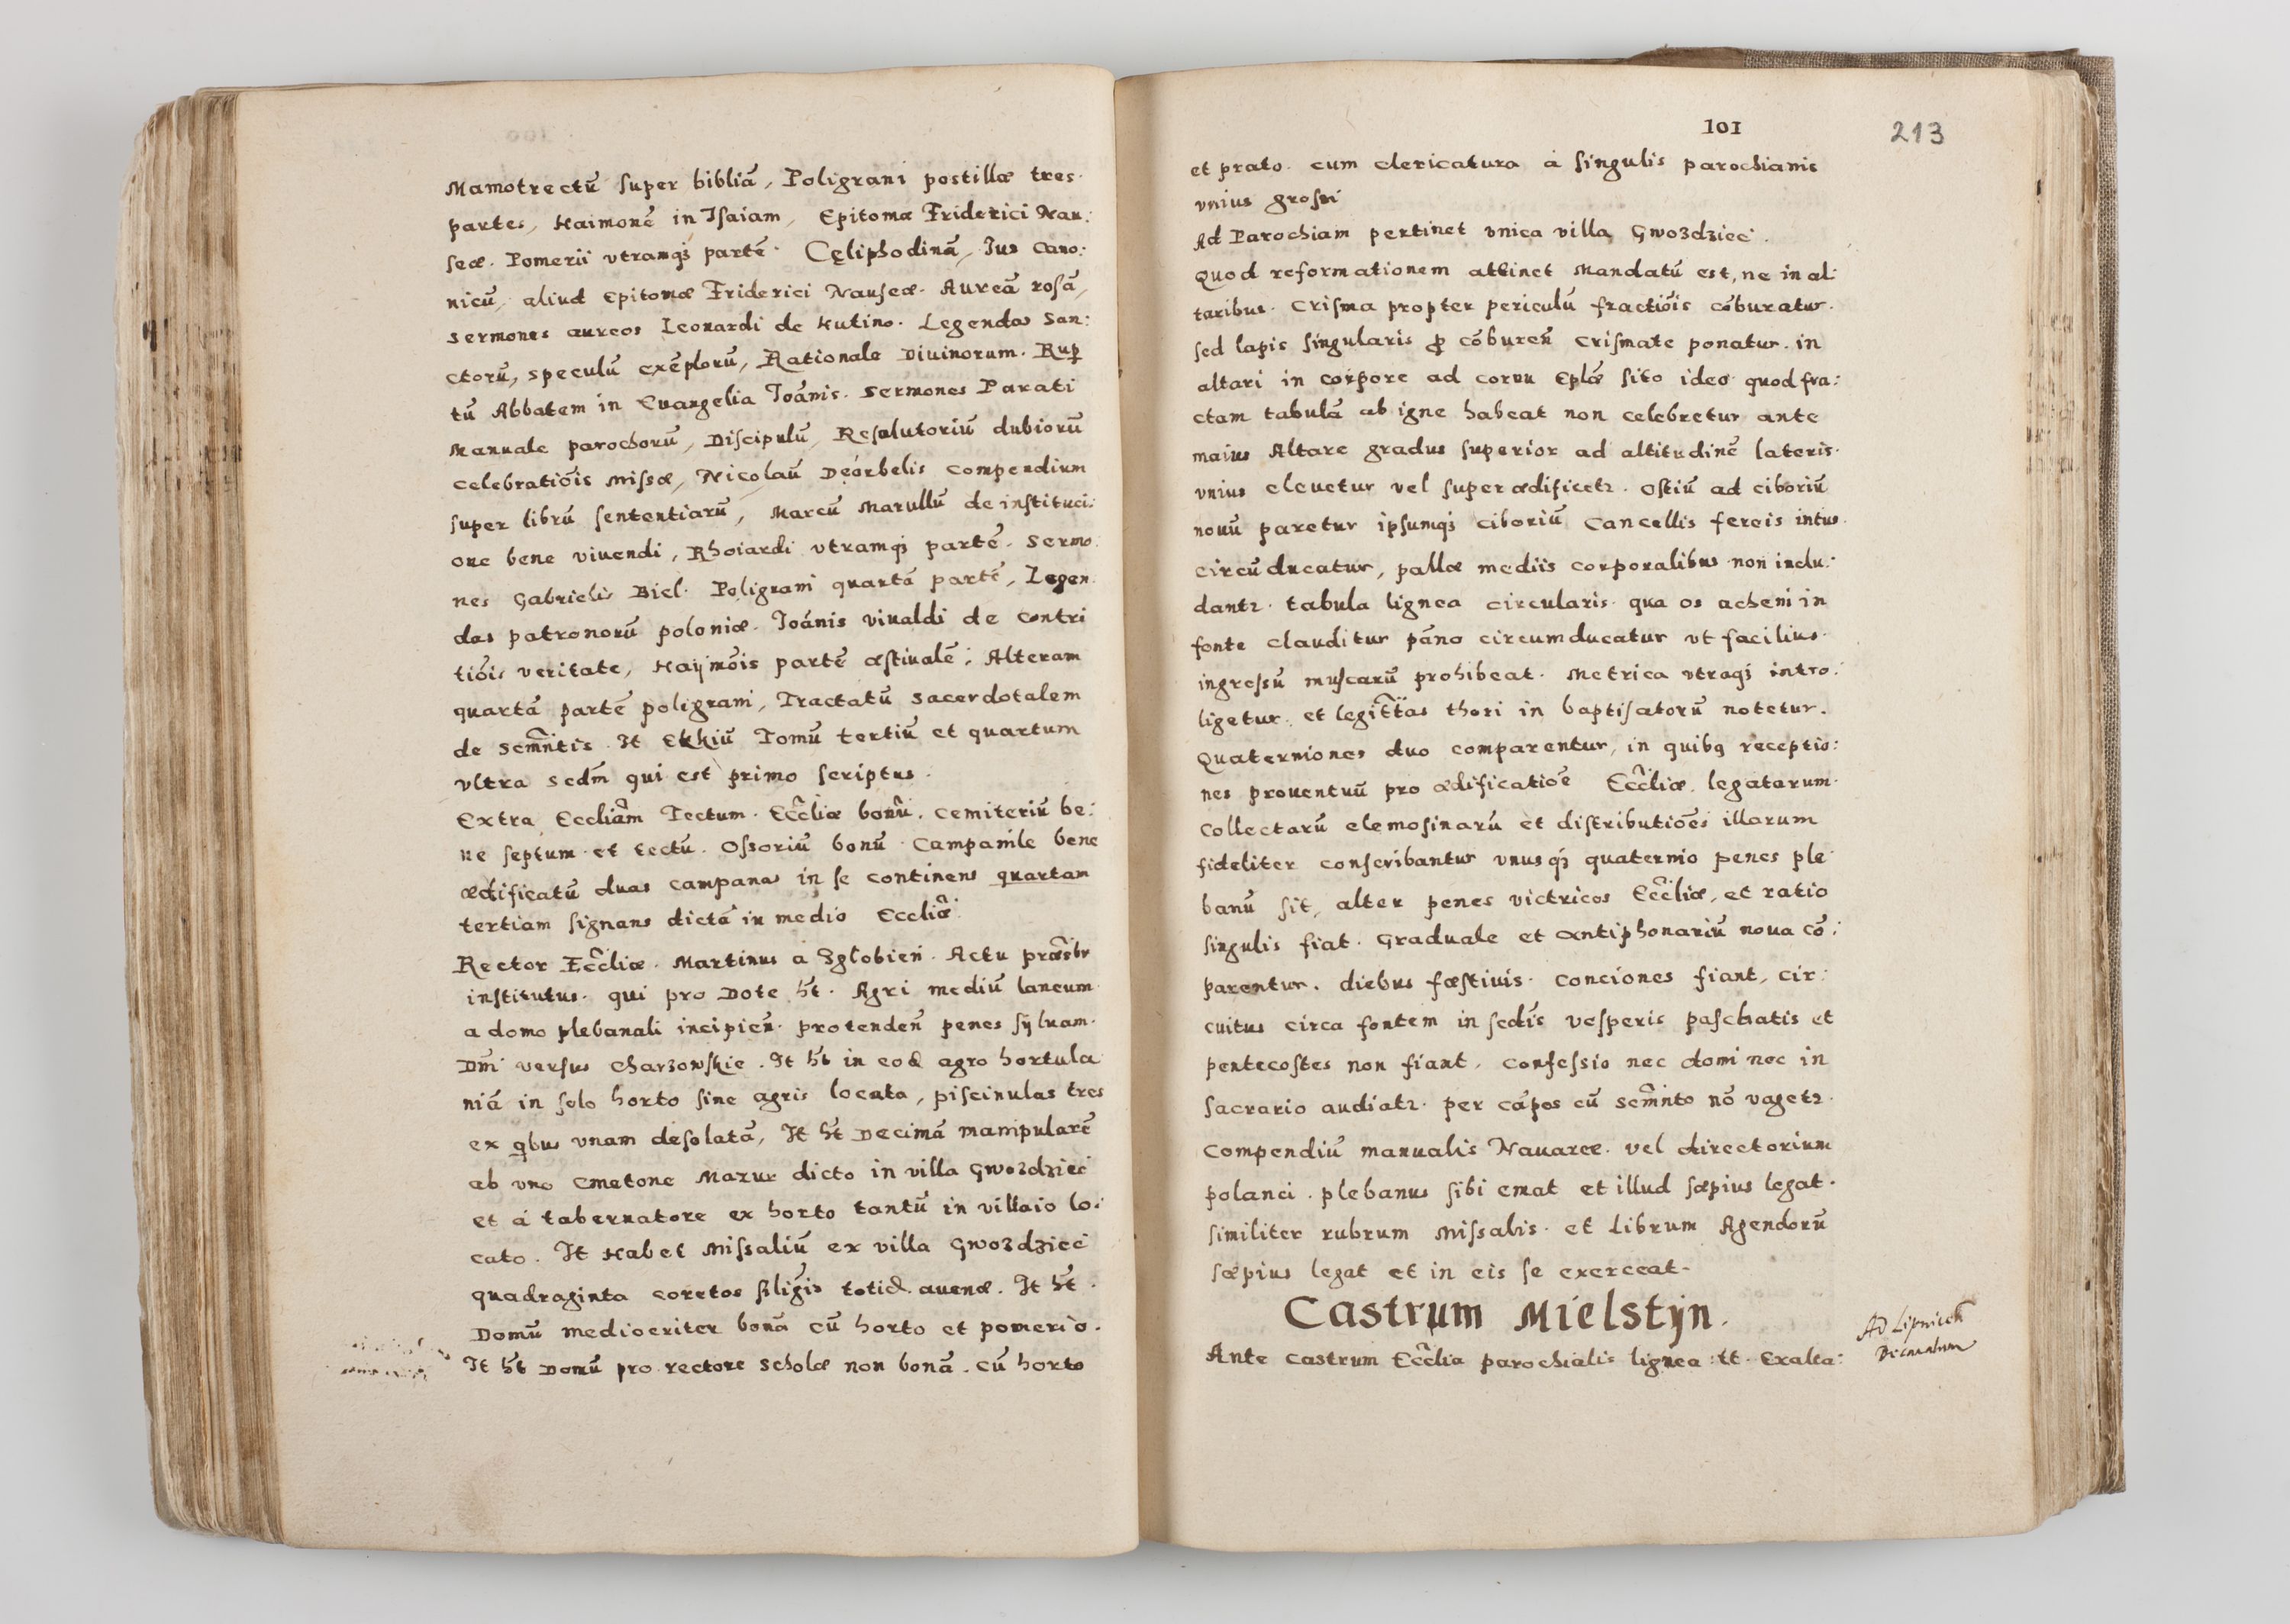 Mamotrectū super bibliā, Poligrani postillæ tres.
partes, Haimonē in Isaiam, Epitomæ Friderici Nau:
seæ. Pomerii vtramqꝫ partē. Cęliphodinā, Ius Cano:
nicū, aliud Epitomæ Friderici Nauseæ. Aureā rosā,
sermones aureos Leonardi de Hutino. Legendas San:
ctorū, speculū exēplorū, Rationale Diuinorum. Rup̱
tū Abbatem in Euangelia Ioānis. Sermones Parati
Manuale parochorū, Discipulū, Resolutoriū dubiorū
celebratiōis Missæ, Nicolaū Deórbelis compendium
super librū sententiarū, Marcū Marullū de instituci:
one bene viuendi, Rhoiardi vtramqꝫ partē. Sermo
nes Gabrielis Biel. Poligrani quartā partē, Legen
das patronorū poloniæ. Ioānis viualdi de Contri
tiōis veritate, Haijmōis partē æstiualē, Alteram
quartā partē poligrani, Tractatū Sacerdotalem
de Scm̄ntis. It Ekkiū Tomū tertiū et quartum
vltra Sedm̄ qui est primo scriptus.
Extra Eccliam̄ Tectum. Eccl̄iæ bonū. Cemiteriū be:
ne septum et tectū. Ossoriū bonū. Campanile bene
ædificatū duas campanas in se continens quartam
tertiam signans dictā in medio Eccliǣ.
Rector Eccl̄iæ. Martinus a Zglobień. Actu præsbr̄
institutus. qui pro Dote ht̄. Agri mediū laneum
a domo plebanali incipień. protendeń penes sylvam.
Dm̄i versus Charzowskie. It ht̄ in eod agro hortula
niā in solo horto sine agris locata, piscinulas tres
ex qbus vnam desolatā, It ht̄ Decimā manipularē
ab vno Cmetone Mazur dicto in villa Gwozdziec
et á tabernatore ex horto tantū in villaio lo:
cato. It Habet Missaliū ex villa Gwozdziec
quadraginta coretos siligi̅s totid. auenæ. It ht̄.
Domū mediocriter bonā cū horto et pomerio.
It ht̄ Domū pro rectore Scholæ non bonā. cū horto
101
213
et prato. cum clericatura á singulis parochianis
vnius grossi
Ad Parochiam pertinet vnica villa Gwozdziec.
Quod reformationem attinet Mandatū est, ne in al:
taribus. Crisma propter periculū fractiōis cōburatur.
sed lapis singularis ꝓ cōbureń Crismate ponatur. in
altari in corpore ad cornu Eplǣ sito ideo quod fra:
ctam tabulā ab igne habeat non celebretur ante
maius Altare gradus superior ad altitudinē lateris.
vnius eleuetur vel superædificetꝛ. Ostiū ad ciboriū
nouū paretur ipsumqꝫ ciboriū Cancellis fereis intus.
circū ducatur, pallæ mediis corporalibus non inclu:
dantꝛ. tabula lignea circularis. qua os acheni in
fonte clauditur pāno circumducatur vt facilius.
ingressū muscarū prohibeat. Metrica vtraqꝫ intro:
ligetur. et legitt̄as thori in baptisatorū notetur.
Quaterniones duo comparentur, in quibꝯ receptio:
nes prouentuū pro ædificatiōe Eccl̄iæ. legatarum.
Collectarū elemosinarū et distributiōes illarum
fideliter conscribantur vnusqꝫ quaternio penes ple
banū sit, alter penes victricos Eccl̄iæ, et ratio
singulis fiat. Graduale et antiphonariū noua cō:
parentur. diebus fæstiuis. Conciones fiant, cir:
cuitus circa fontem in sedīs vesperis paschatis et
pentecostes non fiant. Confessio nec domi nec in
sacrario audiatꝛ. per cāpos cū Scm̄nto nō vagetꝛ.
Compendiū manualis Nauarræ. vel directorium
polanci. plebanus sibi emat et illud sæpius legat.
similiter rubrum Missalis. et Librum Agendorū
sæpius legat et in eis se exerceat.
Castrum Mielstyn.
Ad Lipnicen̄
Decanatum
Ante Castrum Eccl̄ia parochialis lignea tt. Exalta: